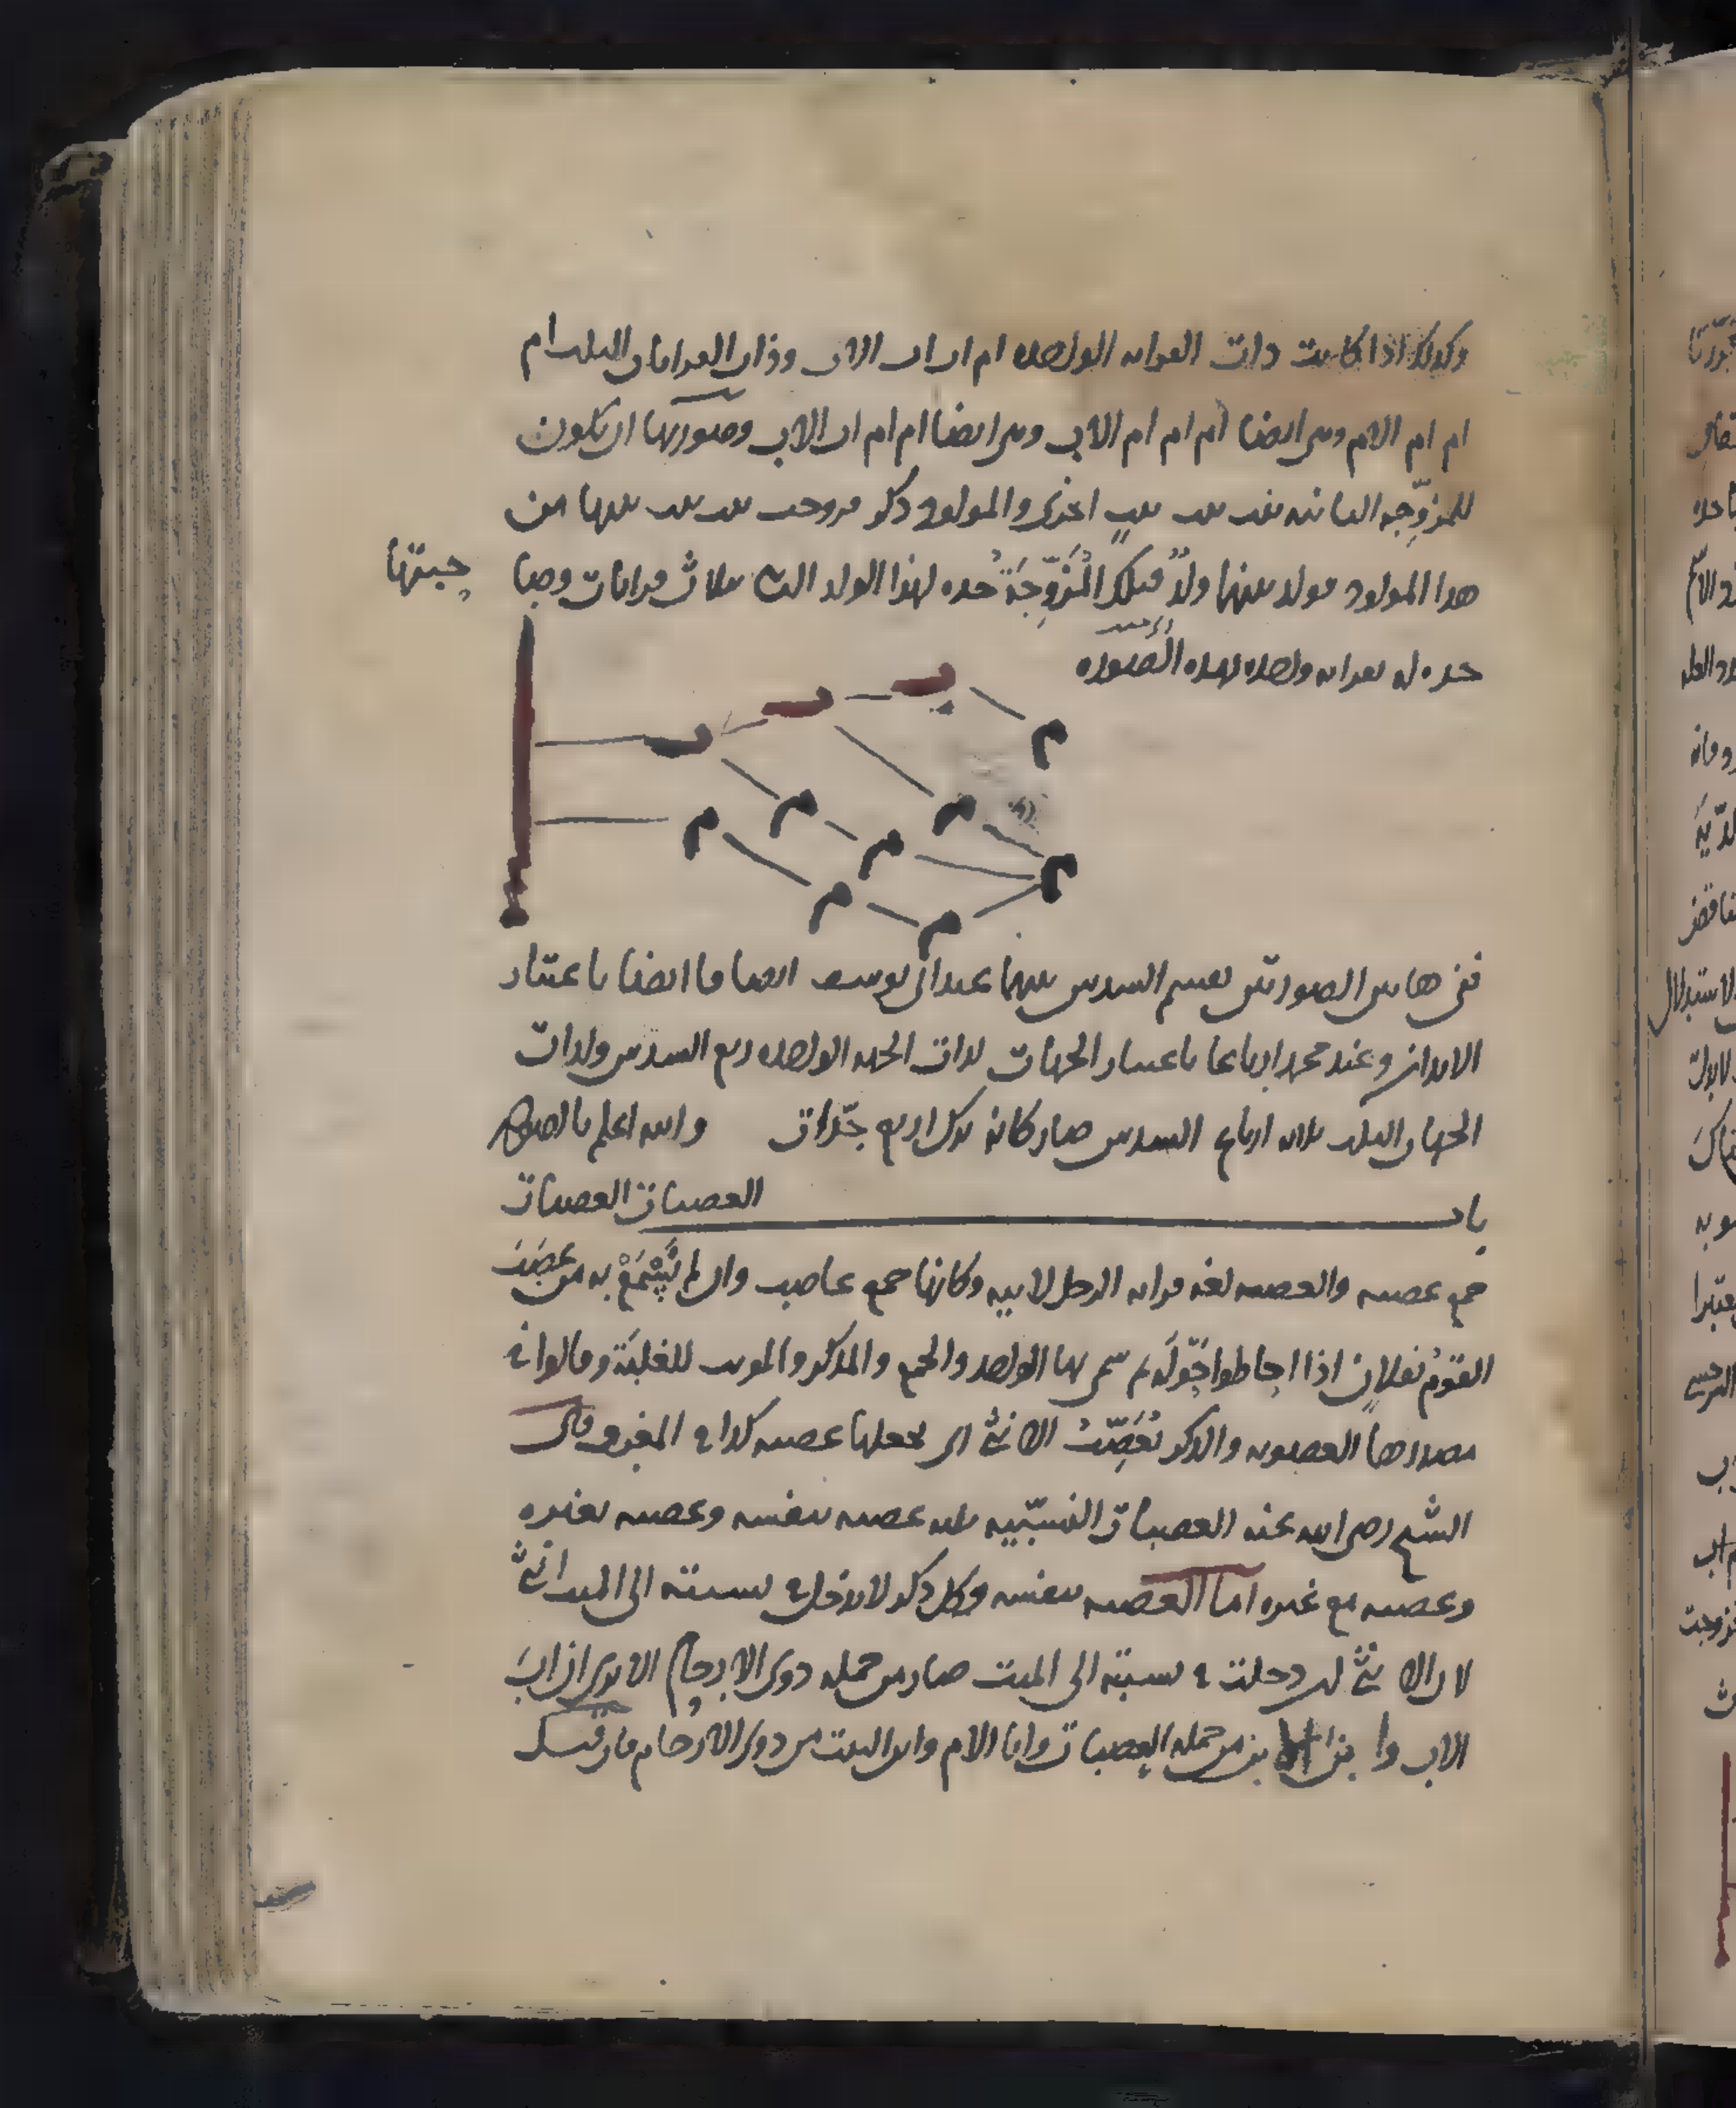 وكذلك اذا كانت ذات القرابه الواحده ام اب اب الاب وذات القرابات الثلث ام
ام ام الام وهي ايضا ام ام ام الاب وهي ايضا ام ام اب الاب وصورتها ان يكون
للمزوّجه الثانيه بنت بنت بنت اخرى والمولود ذكر فزوجت بنت بنت بنتها من
هذا المولود فولد بينهما ولدٌ فتلك المُزَوِّجَةُ جده لهذا الولد الثالث بثلاث قرابات وصاحبتها
جده له بقرابه واحده بهذه الصوره
ب
ب
ب
م
م
م
م
م
م
م
م
ففي هاتين الصورتين يقسم السدس بينهما عند ابي يوسف انصافا ايضا باعتبار
الابدان وعند محمد ارباعا باعتبار الجهات لذات الجهه الواحده ربع السدس ولذات
الجهات الثلث ثلاثه ارباع السدس صار كانه ترك اربع جدّات والله اعلم بالصواب
باب العصبات العصبات
جمع عصبه والعصبه لغه قرابه الرجل لابيه وكانها جمع عاصب وان لم يُسْمَعْ به من عَصَبَ
القومُ بفلانٍ اذا احاطوا حَوْلَه ثم سمي بها الواحد والجمع والمذكر والمونث للغلبَة وقالوا في
مصدرها العصوبه والذكر يُعَصِّبُ الانثى اي يجعلها عصبه كذا في المغرب قال
الشيخ رضي الله عنه العصبات النسبيّه ثلثه عصبه بنفسه وعصبه بغيره
وعصبه مع غيره اما العصبه بنفسه وكل ذكر لا يدخل في نسبته الى الميت انثى
لان الانثى لو دخلت في نسبته الى الميت صار من جمله ذوى الارحام الا يرى ان اب
الاب وابن الابن من جمله العصبات وابا الام وابن البنت من ذوى الارحام فان قيل